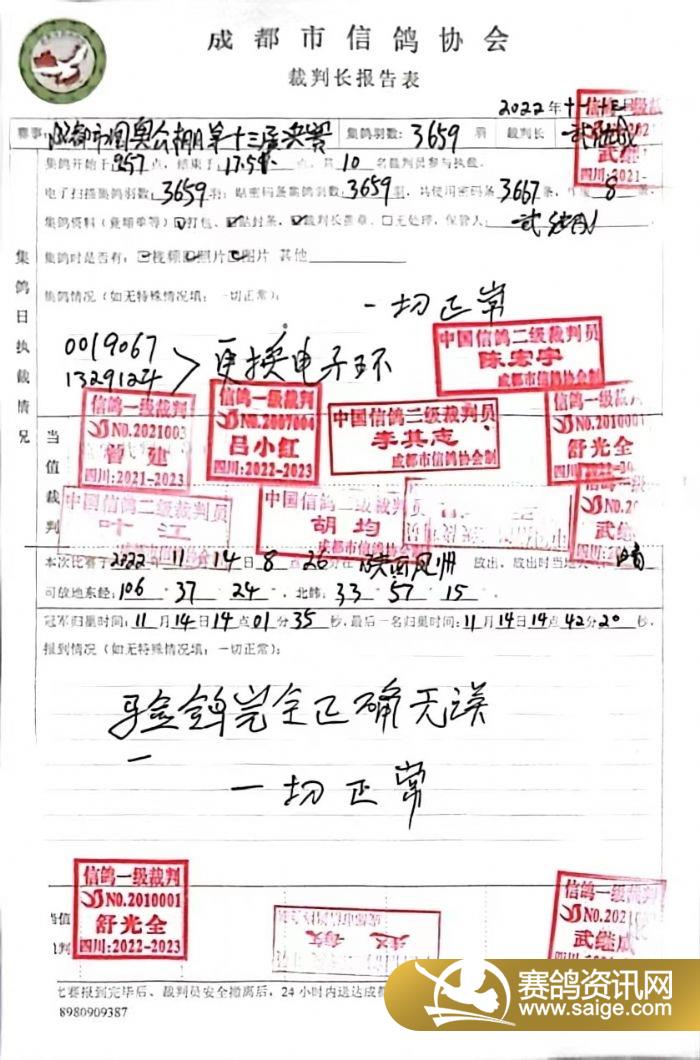 成都市信鸽协会
裁判长报告表
2022年十一月十三日
赛事: 成都市国奥公棚第十三届决赛 集鸽羽数: 3659 羽 裁判长
集鸽开始于957点,结束于17.54点,共10名裁判员参与执裁。
电子扫描集鸽羽数:3659羽;贴密码条集鸽羽数:3659羽,共使用密码条3667条,8条。
集鸽资料(竟翔单等)☑打包、☑贴封条、☑裁判长盖章、□无处理,保管人:
集鸽时是否有: ☑视频☑照片☑图片 其他
集鸽情况(如无特殊情况填:一切正常):
一切正常
0019067
1329124 > 更换电子环
集鸽日执裁情况
当值裁判
中国信鸽二级裁判员
陈宏宇
成都市信鸽协会制
信鸽一级裁判
NO.2021003
曾建
四川:2021-2023
信鸽一级裁判
NO.2007004
吕小红
四川:2022-2023
中国信鸽二级裁判员
李其志
成都市信鸽协会制
信鸽一级裁判
NO.2010001
舒光全
中国信鸽二级裁判员
叶江
中国信鸽二级裁判员
胡均
成都市信鸽协会制
武继成
本次比赛于2022年11月14日8点26分在陕西凤州放出,放出时当地天气:晴
司放地东经:106°37′24″,北纬:33°57′15″。
冠军归巢时间:11月14日14点01分35秒,最后一名归巢时间:11月14日14点42分20秒,
报到情况(如无特殊情况填:一切正常):
验鸽完全正确无误
一切正常
信鸽一级裁判
NO.2010001
舒光全
四川:2022-2023
信鸽一级裁判
武继成
四川:2021-
赛报到完毕后、裁判员安全撤离后,24小时内送达成都
8980909387
赛鸽资讯网
www.saige.com